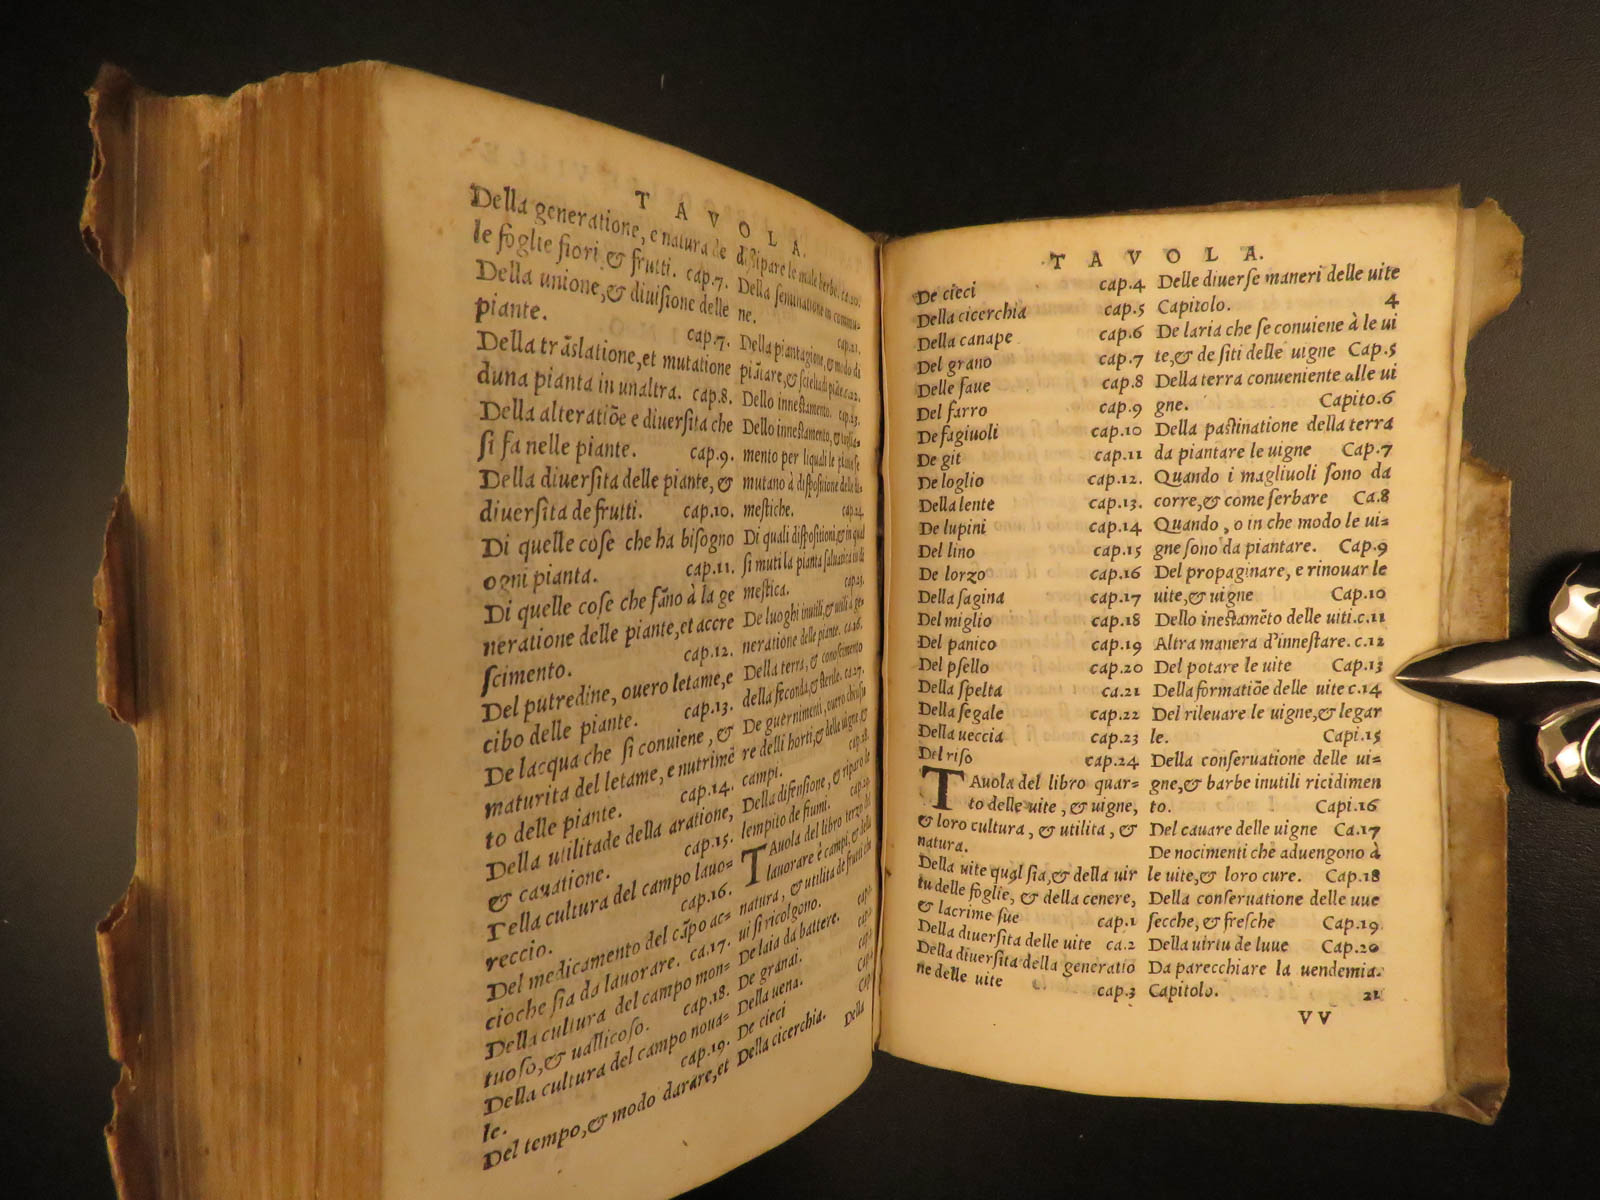 TAVOLA.
Della generatione, e natura de
le foglie fiori, & frutti. cap.7.
Della unione, & diuisione delle
piante. cap.7.
Della trãslatione, et mutatione
duna pianta in unaltra. cap.8.
Della alteratiõe e diuersita che
si fa nelle piante. cap.9.
Della diuersita delle piante, &
diuersita de frutti. cap.10.
Di quelle cose che ha bisogno
ogni pianta. cap.11.
Di quelle cose che fãno à la ge
neratione delle piante, et accre
scimento. cap.12.
Del putredine, ouero letame, e
cibo delle piante. cap.13.
De lacqua che si conuiene, &
maturita del letame, e nutrimẽ
to delle piante. cap.14.
Della utilitade della aratione,
& cauatione. cap.15.
Della cultura del campo lauo=
reccio. cap.16.
Del medicamento del cãpo ac=
cioche sia da lauorare. ca.17.
Della cultura del campo mon=
tuoso, & uallicoso. cap.18.
Della cultura del campo noua=
le. cap.19.
Del tempo, & modo darare, et
dissipare le male herbe. ca.20.
Della seminatione in commu=
ne. cap.21.
Della piantagione, & modo di
piãtare, & scielta di piãte. ca.22.
Dello innestamento. cap.23.
Dello innestamento, & taglia=
mento per liquali le piante se
mutano à dispositione delle di=
mestiche. cap.24.
Di quali dispositioni, & in qual
si muti la pianta saluatica in di
mestica. cap.25.
De luoghi inutili, & utili à ge=
neratione delle piante. ca.26.
Della terra, & conoscimento
della feconda, & sterile. ca.27.
De guernimenti, ouero chiusu
re delli horti, & delle uigne, &
campi. cap.28.
Della difensione, & riparo de
lempito de fiumi. cap.29.
TAuola del libro terzo del
lauorare è campi, & della
natura, & utilita de frutti che
ui si ricolgono.
De laia da battere.
De granai.
Della uena.
De cieci
Della cicerchia.
Della
TAVOLA.
De cieci cap.4
Della cicerchia cap.5
Della canape cap.6
Del grano cap.7
Delle faue cap.8
Del farro cap.9
De fagiuoli cap.10
De git cap.11
De loglio cap.12.
Della lente cap.13.
De lupini cap.14
Del lino cap.15
De lorzo cap.16
Della sagina cap.17
Del miglio cap.18
Del panico cap.19
Del psello cap.20
Della spelta ca.21
Della segale cap.22
Della ueccia cap.23
Del riso cap.24
TAuola del libro quar=
to delle uite, & uigne,
& loro cultura, & utilita, &
natura.
Della uite qual sia, & della uir
tu delle foglie, & della cenere,
& lacrime sue cap.1
Della diuersita delle uite ca.2
Della diuersita della generatio
ne delle uite cap.3
Delle diuerse maneri delle uite
Capitolo. 4
De laria che se conuiene à le ui
te, & de siti delle uigne Cap.5
Della terra conueniente alle ui
gne. Capito.6
Della pastinatione della terra
da piantare le uigne Cap.7
Quando i magliuoli sono da
corre, & come serbare Ca.8
Quando, o in che modo le ui=
gne sono da piantare. Cap.9
Del propaginare, e rinouar le
uite, & uigne Cap.10
Dello inestamẽto delle uiti. c.11
Altra manera d'innestare. c.12
Del potare le uite Cap.13
Della formatiõe delle uite c.14
Del rileuare le uigne, & legar
le. Capi.15
Della conseruatione delle ui=
gne, & barbe inutili ricidimen
to. Capi.16
Del cauare delle uigne Ca.17
De nocimenti che aduengono à
le uite, & loro cure. Cap.18
Della conseruatione delle uue
secche, & fresche Cap.19.
Della uirtu de luue Cap.20
Da parecchiare la uendemia.
Capitolo. 21
VV